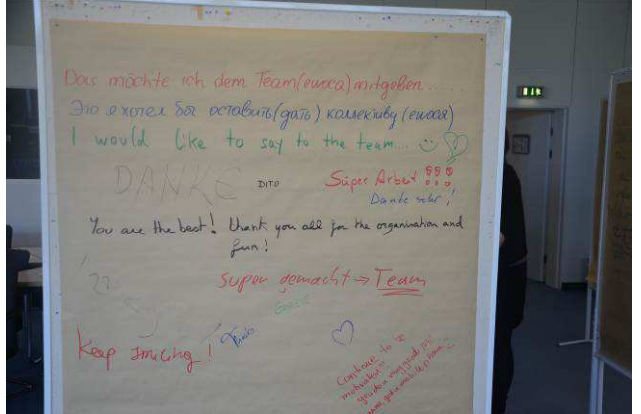 Das möchte ich dem Team (ewoca) mitgeben.....
Это я хотел бы оставить (дать) коллективу (ewoca)
I would like to say to the team...
DANKE DITO Süper Arbeit !!!
Danke sehr!
You are the best! thank you all for the organisation and
fun!
Super gemacht → Team
Keep smiling! Thanks
Continue to
motivate